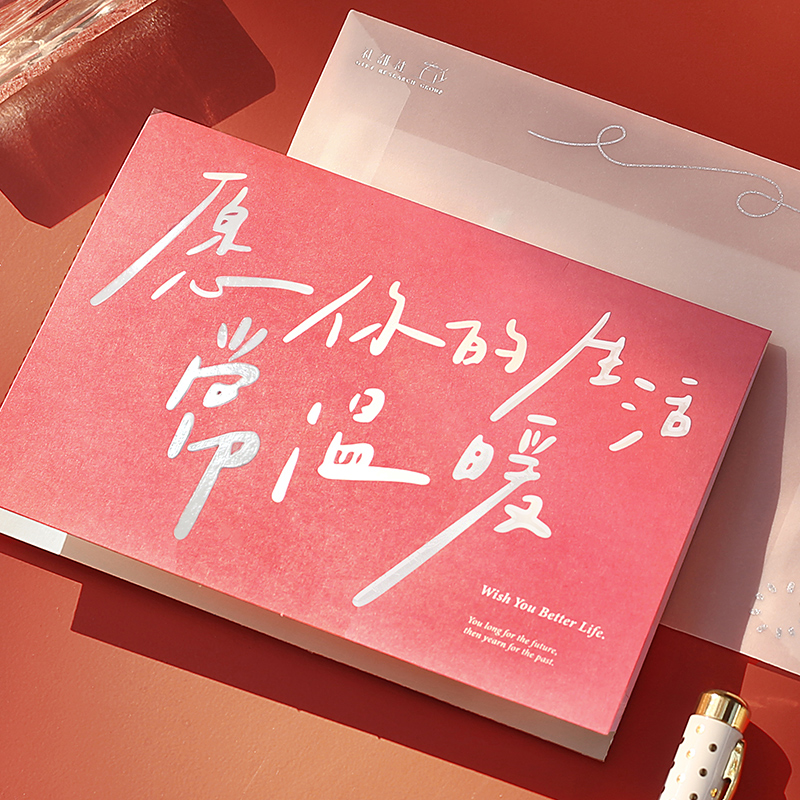 GIFT RESEARCH GROUP
愿你的生活
常温暖
Wish You Better Life.
You long for the future,
then yearn for the past.